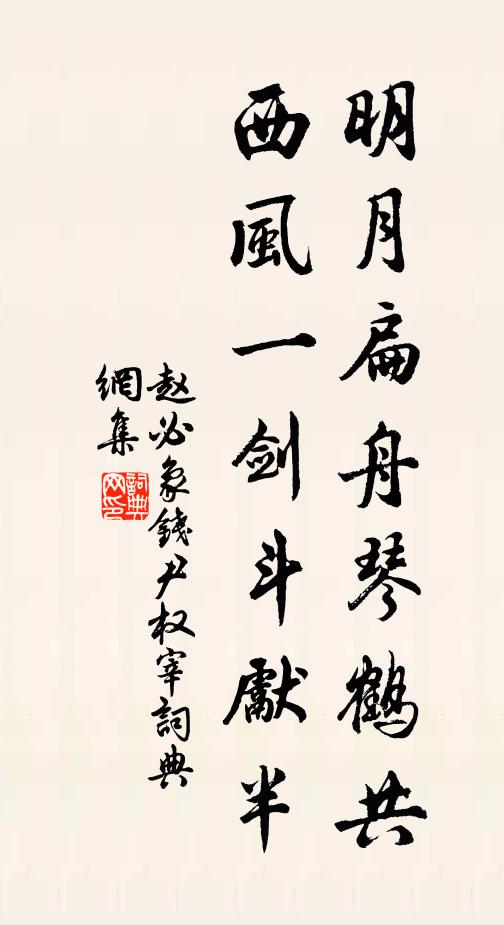 明月扁舟琴鶴共
西風一剑斗獻半
赵必象錢尹权宰詞典
網集
詞典
网印